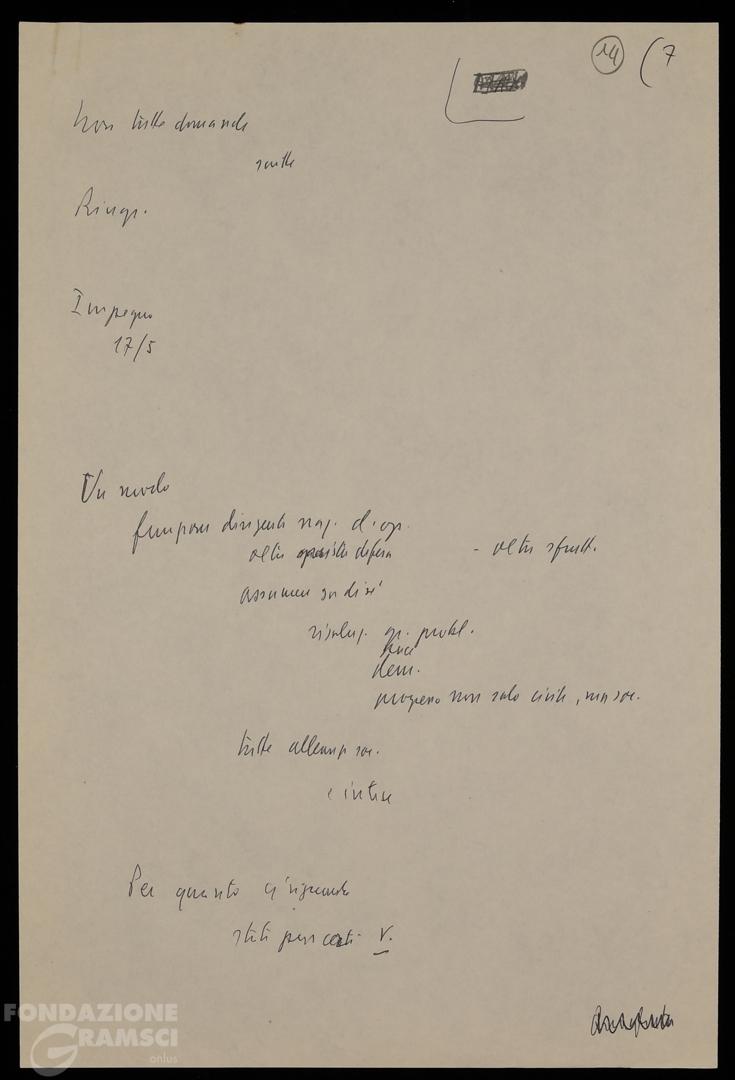 14 (7
Non tutte domande
scritte
Ringr.
Impegno
17/5
Un nodo
funzione dirigente naz. cl. op.
oltre difesa - oltre sfrutt.
assumere su di sé
risoluz. gr. probl.
pace
dem.
progresso non solo civile, ma soc.
tutte alleanze soc.
e intese
Per quanto ci riguarda
V.
FONDAZIONE
GRAMSCI
onlus